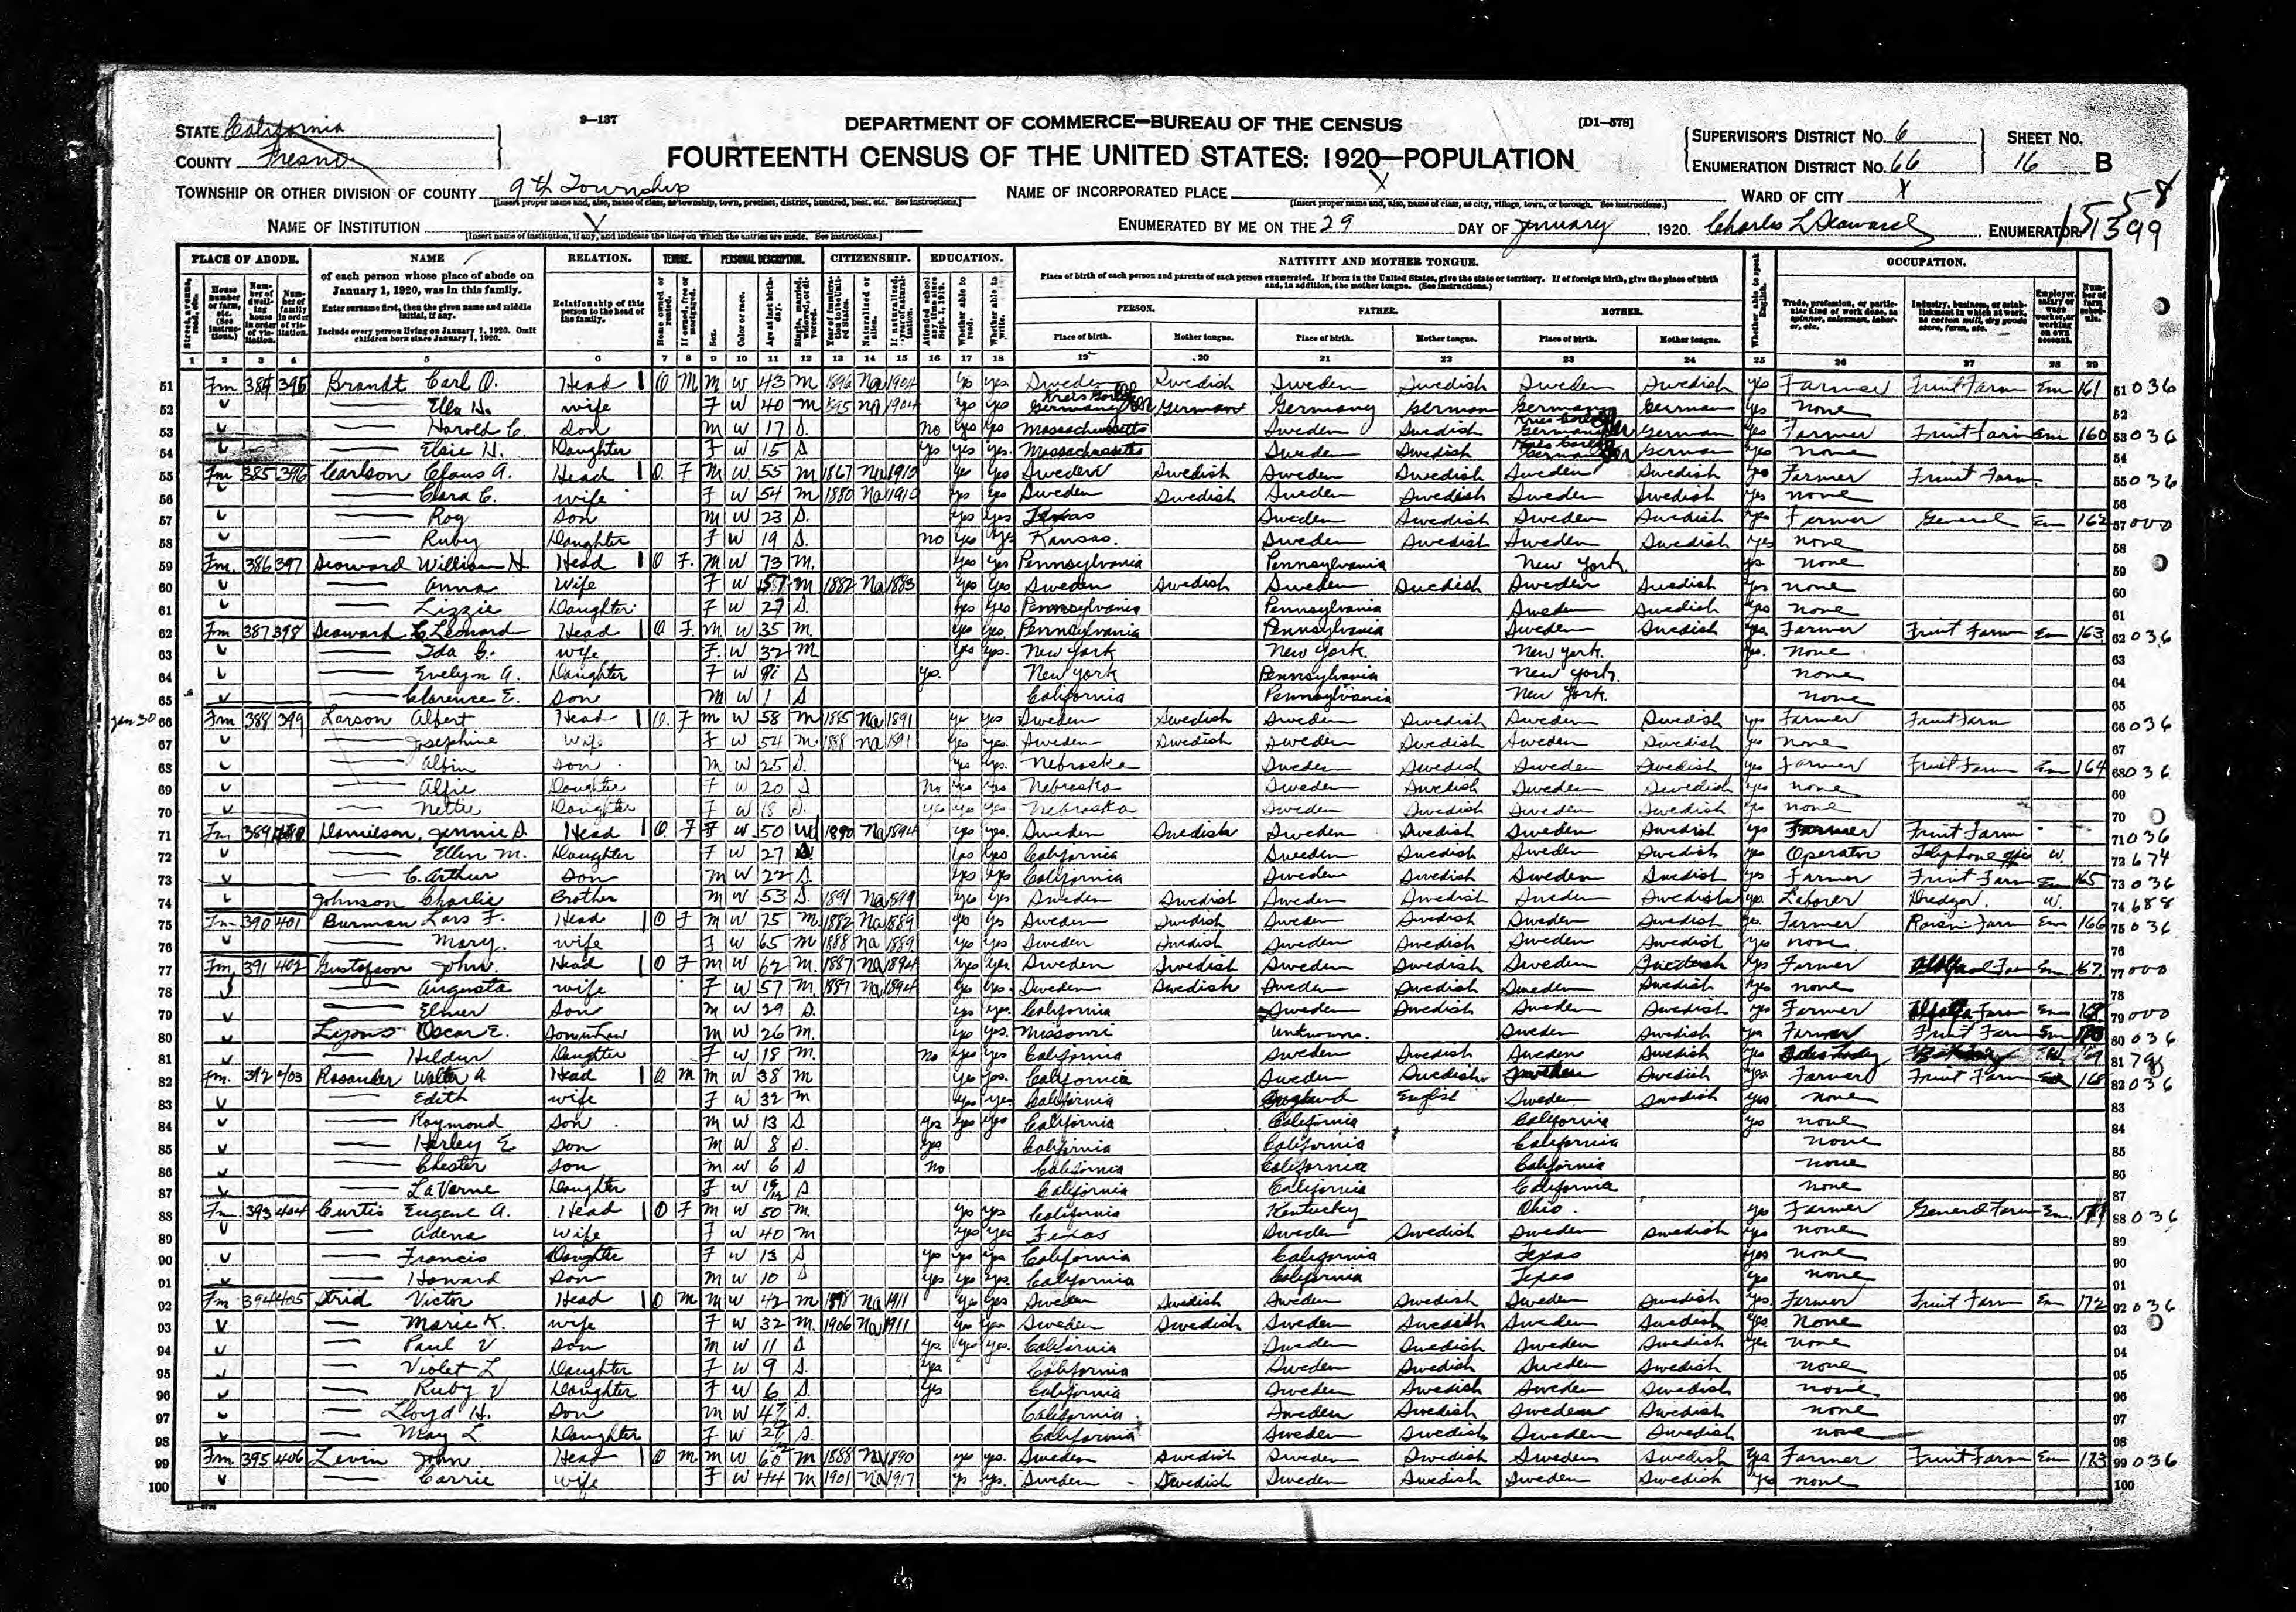 STATE California
9—137
DEPARTMENT OF COMMERCE—BUREAU OF THE CENSUS
[D1—578]
SUPERVISOR'S DISTRICT No. 6
SHEET No.
COUNTY Fresno
FOURTEENTH CENSUS OF THE UNITED STATES: 1920—POPULATION
ENUMERATION DISTRICT No. 66
16 B
TOWNSHIP OR OTHER DIVISION OF COUNTY 9th Township
NAME OF INCORPORATED PLACE X
WARD OF CITY X
NAME OF INSTITUTION X
ENUMERATED BY ME ON THE 29 DAY OF January, 1920. Charles L Seaward ENUMERATOR.
PLACE OF ABODE. NAME RELATION. TENURE. PERSONAL DESCRIPTION. CITIZENSHIP. EDUCATION. NATIVITY AND MOTHER TONGUE. OCCUPATION.
of each person whose place of abode on January 1, 1920, was in this family.
Enter surname first, then the given name and middle initial, if any.
Include every person living on January 1, 1920. Omit children born since January 1, 1920.
Relationship of this person to the head of the family.
Place of birth of each person and parents of each person enumerated. If born in the United States, give the state or territory. If of foreign birth, give the place of birth and, in addition, the mother tongue. (See Instructions.)
PERSON. FATHER. MOTHER.
Place of birth. Mother tongue. Place of birth. Mother tongue. Place of birth. Mother tongue.
1 2 3 4 5 6 7 8 9 10 11 12 13 14 15 16 17 18 19 20 21 22 23 24 25 26 27 28 29
51 Fm 384 395 Brandt Carl O. Head 1 O M M W 43 M 1896 Na 1904 yes yes Sweden Swedish Sweden Swedish Sweden Swedish yes Farmer Fruit Farm Em 161 51 036
52 Ella H. wife F W 40 M 1895 na 1904 yes yes Germany German Germany German Germany German yes none 52
53 Harold C. Son M W 17 S. no yes yes Massachusetts Sweden Swedish German yes Farmer Fruit Farm Em 160 53 036
54 Elsie H. Daughter F W 15 S yes yes yes. Massachusetts Sweden Swedish German yes none 54
55 Fm 385 396 Carlson Claus A. Head 1 O. F M W 55 M 1867 Na 1910 yes yes Sweden Swedish Sweden Swedish Sweden Swedish yes Farmer Fruit Farm 55 036
56 Clara C. wife F W 54 M 1880 Na 1910 yes yes Sweden Swedish Sweden Swedish Sweden Swedish yes none 56
57 Roy Son M W 23 S. yes yes Texas Sweden Swedish Sweden Swedish yes Farmer General Em 162 57 000
58 Ruby Daughter F W 19 S. no yes yes Kansas. Sweden Swedish Sweden Swedish yes none 58
59 Fm. 386 397 Seaward William H. Head 1 O F. M W 73 M. yes yes Pennsylvania Pennsylvania New York. yes none 59
60 Anna Wife F W 57 M 1882 Na 1883 yes yes Sweden Swedish Sweden Swedish Sweden Swedish yes none 60
61 Lizzie Daughter F W 27 S. yes yes Pennsylvania Pennsylvania Sweden Swedish yes none 61
62 Fm 387 398 Seaward C. Leonard Head 1 O F. M W 35 M. yes yes. Pennsylvania Pennsylvania Sweden Swedish yes Farmer Fruit Farm Em 163 62 036
63 Ida G. wife F. W 32 M yes yes. New York New York. New York. yes. none 63
64 Evelyn A. Daughter F W S yes. New York Pennsylvania New York. none 64
65 Clarence E. Son M W 1 S California Pennsylvania New York. none 65
Jan 30 66 Fm 388 399 Larson Albert Head 1 O. F M W 58 M 1885 Na 1891 yes yes Sweden Swedish Sweden Swedish Sweden Swedish yes Farmer Fruit Farm 66 036
67 Josephine Wife F W 54 M 1888 na 1891 yes yes. Sweden Swedish Sweden Swedish Sweden Swedish yes none 67
68 Albin Son M W 25 S. yes yes. Nebraska Sweden Swedish Sweden Swedish yes Farmer Fruit Farm Em 164 68 036
69 Alfie Daughter F W 20 S No yes yes Nebraska Sweden Swedish Sweden Swedish yes none 69
70 Nettie Daughter F W 18 S. yes yes yes Nebraska Sweden Swedish Sweden Swedish yes none 70
71 Fm 389 400 Danielson, Jennie S. Head 1 O. F F W 50 Wd 1890 Na 1894 yes yes. Sweden Swedish Sweden Swedish Sweden Swedish yes Farmer Fruit Farm 71 036
72 Ellen M. Daughter F W 27 S. yes yes California Sweden Swedish Sweden Swedish yes Operator Telephone office W. 72 674
73 C. Arthur Son M W 22 S. yes yes California Sweden Swedish Sweden Swedish yes Farmer Fruit Farm Em 165 73 036
74 Johnson Charlie Brother M W 53 S. 1891 Na 1899 yes yes Sweden Swedish Sweden Swedish Sweden Swedish yes Laborer Dredger. W. 74 688
75 Fm 390 401 Burman Lars F. Head 1 O F M W 75 M. 1882 Na 1889 yes yes Sweden Swedish Sweden Swedish Sweden Swedish yes. Farmer Raisin Farm Em 166 75 036
76 Mary. wife F W 65 M 1888 na 1889 yes yes Sweden Swedish Sweden Swedish Sweden Swedish yes none. 76
77 Fm, 391 402 Gustafson John. Head 1 O F M W 62 M. 1887 Na 1894 yes yes. Sweden Swedish Sweden Swedish Sweden Swedish yes Farmer Farm Em 167. 77 000
78 Augusta wife F W 57 M. 1887 Na 1894 yes yes. Sweden Swedish Sweden Swedish Sweden Swedish yes none 78
79 Elmer Son M W 29 S. yes yes. California Sweden Swedish Sweden Swedish yes Farmer Alfalfa Farm Em 168 79 000
80 Lyons Oscar E. Son in Law M W 26 M. yes yes. Missouri Unknown. Sweden Swedish yes Farmer Fruit Farm Em 80 036
81 Hildur Daughter F W 18 M. No yes yes California Sweden Swedish Sweden Swedish yes Saleslady W. 81
82 Fm. 392 403 Rosander Walter A. Head 1 O M M W 38 M yes yes. California Sweden Swedish Sweden Swedish yes. Farmer Fruit Farm 82 036
83 Edith wife F W 32 M yes yes. California England English Sweden Swedish yes. none 83
84 Raymond Son M W 13 S yes yes yes California California California yes none 84
85 Harley E Son M W 8 S. yes California California California none 85
86 Chester Son M W 6 S no California California California none 86
87 LaVerne Daughter F W S California California California none 87
88 Fm. 393 404 Curtis Eugene A. Head 1 O F M W 50 M. yes yes California Kentucky Ohio. yes Farmer General Farm Em. 88 036
89 Adena Wife F W 40 M yes yes Texas Sweden Swedish Sweden Swedish yes none 89
90 Francis Daughter F W 13 S yes yes yes California California Texas yes none 90
91 Howard Son M W 10 S yes yes yes. California California Texas yes none 91
92 Fm 394 405 Strid Victor Head 1 O M M W 42 M 1898 Na 1911 yes yes Sweden Swedish Sweden Swedish Sweden Swedish yes. Farmer Fruit Farm Em 172 92 036
93 Marie K. wife F W 32 M. 1906 Na 1911 yes yes Sweden Swedish Sweden Swedish Sweden Swedish yes. None 93
94 Paul V Son M W 11 S yes yes yes. California Sweden Swedish Sweden Swedish yes none 94
95 Violet L Daughter F W 9 S. yes California Sweden Swedish Sweden Swedish none 95
96 Ruby V Daughter F W 6 S. yes California Sweden Swedish Sweden Swedish none 96
97 Lloyd H. Son M W S. California Sweden Swedish Sweden Swedish none 97
98 May L. Daughter F W S. California Sweden Swedish Sweden Swedish none 98
99 Fm 395 406 Levin John Head 1 O M M W 60 M 1888 Na 1890 yes yes. Sweden Swedish Sweden Swedish Sweden Swedish yes Farmer Fruit Farm Em 173 99 036
100 Carrie wife F W 44 M 1901 na 1917 yes yes. Sweden Swedish Sweden Swedish Sweden Swedish yes none 100